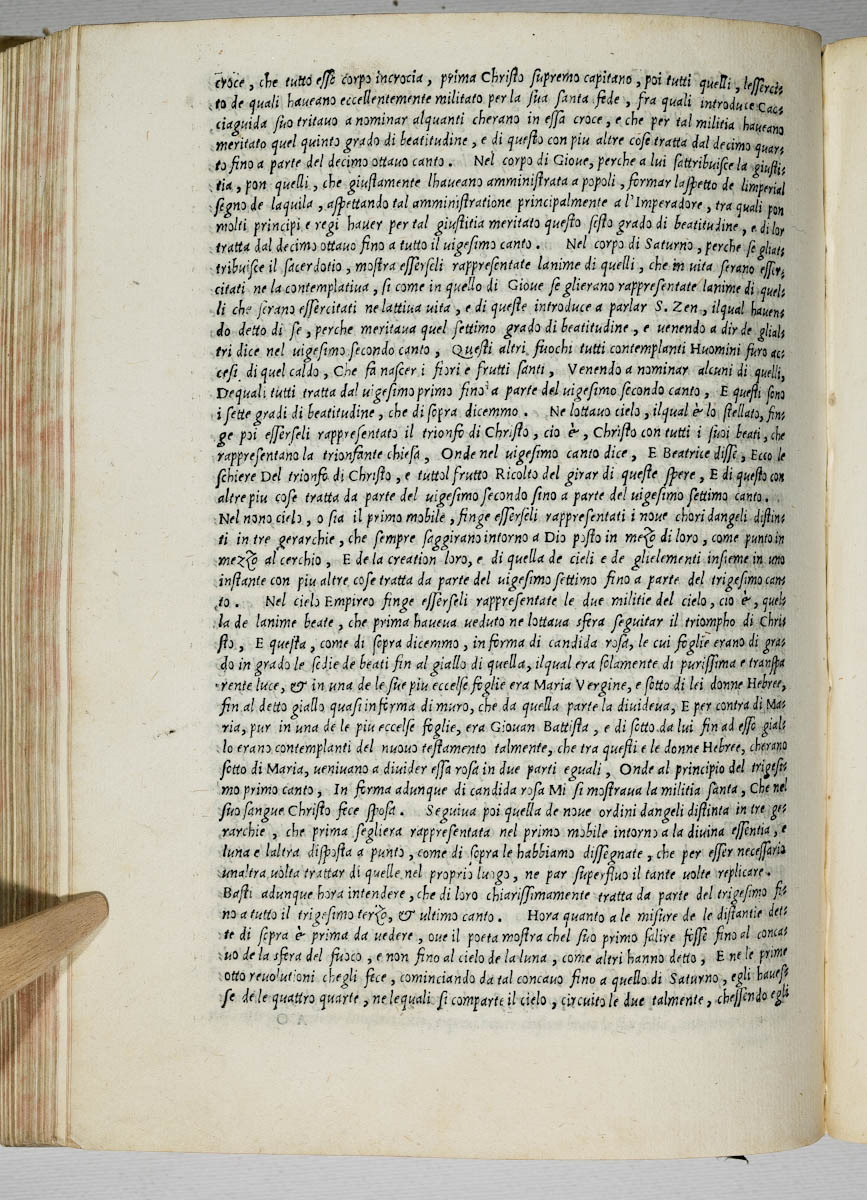 croce, che tutto esse corpo incrocia, prima Christo supremo capitano, poi tutti quelli, lesserci⸗
to de quali haueano eccellentemente militato per la sua santa fede, fra quali introduce Cac⸗
ciaguida suo tritauo a nominar alquanti cherano in essa croce, e che per tal militia haueano
meritato quel quinto grado di beatitudine, e di questo con piu altre cose tratta dal decimo quar⸗
to fino a parte del decimo ottauo canto. Nel corpo di Gioue, perche a lui sattribuisce la giusti⸗
tia, pon quelli, che giustamente lhaueano amministrata a popoli, formar laspetto de limperial
segno de laquila, aspettando tal amministratione principalmente a l'Imperadore, tra quali pon
molti principi e regi hauer per tal giustitia meritato questo sesto grado di beatitudine, e di lor
tratta dal decimo ottauo fino a tutto il uigesimo canto. Nel corpo di Saturno, perche se gliat⸗
tribuisce il sacerdotio, mostra esserseli rappresentate lanime di quelli, che in uita serano esser⸗
citati ne la contemplatiua, si come in quello di Gioue se glierano rappresentate lanime di quel⸗
li che serano essercitati ne lattiua uita, e di queste introduce a parlar S. Zen, ilqual hauen⸗
do detto di se, perche meritaua quel settimo grado di beatitudine, e uenendo a dir de glial⸗
tri dice nel uigesimo secondo canto, Questi altri fuochi tutti contemplanti Huomini furo ac⸗
cesi di quel caldo, Che fa nascer i fiori e frutti santi, Venendo a nominar alcuni di quelli,
De quali tutti tratta dal uigesimo primo fino a parte del uigesimo secondo canto, E questi sono
i sette gradi di beatitudine, che di sopra dicemmo. Ne lottauo cielo, ilqual è lo stellato, fin⸗
ge poi esserseli rappresentato il trionfo di Christo, cio è, Christo con tutti i suoi beati, che
rappresentano la trionfante chiesa, Onde nel uigesimo canto dice, E Beatrice disse, Ecco le
schiere Del trionfo di Christo, e tuttol frutto Ricolto del girar di queste spere, E di questo con
altre piu cose tratta da parte del uigesimo secondo sino a parte del uigesimo settimo canto.
Nel nono cielo, o sia il primo mobile, finge esserseli rappresentati i noue chori dangeli distin⸗
ti in tre gerarchie, che sempre saggirano intorno a Dio posto in mezzo di loro, come punto in
mezzo al cerchio, E de la creation loro, e di quella de cieli e de glielementi insieme in uno
instante con piu altre cose tratta da parte del uigesimo settimo fino a parte del trigesimo can⸗
to. Nel cielo Empireo finge esserseli rappresentate le due militie del cielo, cio è, quel⸗
la de lanime beate, che prima haueua ueduto ne lottaua sfera seguitar il triompho di Chri⸗
sto, E questa, come di sopra dicemmo, in forma di candida rosa, le cui foglie erano di gra⸗
do in grado le sedie de beati fin al giallo di quella, ilqual era solamente di purissima e transpa
rente luce, & in una de le sue piu eccelse foglie era Maria Vergine, e sotto di lei donne Hebree,
fin al detto giallo quasi in forma di muro, che da quella parte la diuideua, E per contra di Ma⸗
ria, pur in una de le piu eccelse foglie, era Giouan Battista, e di sotto da lui fin ad esso gial⸗
lo erano contemplanti del nuouo testamento talmente, che tra questi e le donne Hebree, cherano
sotto di Maria, ueniuano a diuider essa rosa in due parti eguali, Onde al principio del trigesi⸗
mo primo canto, In forma adunque di candida rosa Mi si mostraua la militia santa, Che nel
suo sangue Christo fece sposa. Seguiua poi quella de noue ordini dangeli distinta in tre ge⸗
rarchie, che prima segliera rappresentata nel primo mobile intorno a la diuina essentia, e
luna e laltra disposta a punto, come di sopra le habbiamo dissegnate, che per esser necessario
unaltra uolta trattar di quelle nel proprio luogo, ne par superfluo il tante uolte replicare.
Basti adunque hora intendere, che di loro chiarissimamente tratta da parte del trigesimo fi⸗
no a tutto il trigesimo terzo, & ultimo canto. Hora quanto a le misure de le distantie det⸗
te di sopra è prima da uedere, oue il poeta mostra chel suo primo salire fosse fino al conca⸗
uo de la sfera del fuoco, e non fino al cielo de la luna, come altri hanno detto, E ne le prime
otto reuolutioni chegli fece, cominciando da tal concauo fino a quello di Saturno, egli haues⸗
se de le quattro quarte, ne lequali si comparte il cielo, circuito le due talmente, chessendo egli